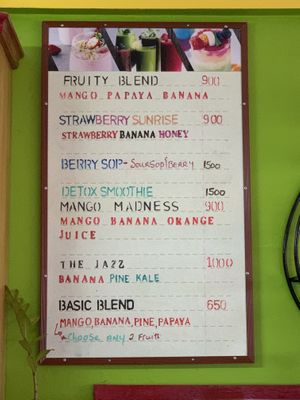 FRUITY BLEND 900
MANGO PAPAYA BANANA
STRAWBERRY SUNRISE 900
STRAWBERRY BANANA HONEY
BERRY SOP - SOURSOP/BERRY 1500
DETOX SMOOTHIE 1500
MANGO MADNESS 900
MANGO BANANA ORANGE
JUICE
THE JAZZ 1000
BANANA PINE KALE
BASIC BLEND 650
MANGO, BANANA, PINE, PAPAYA
Choose any 2 Fruits